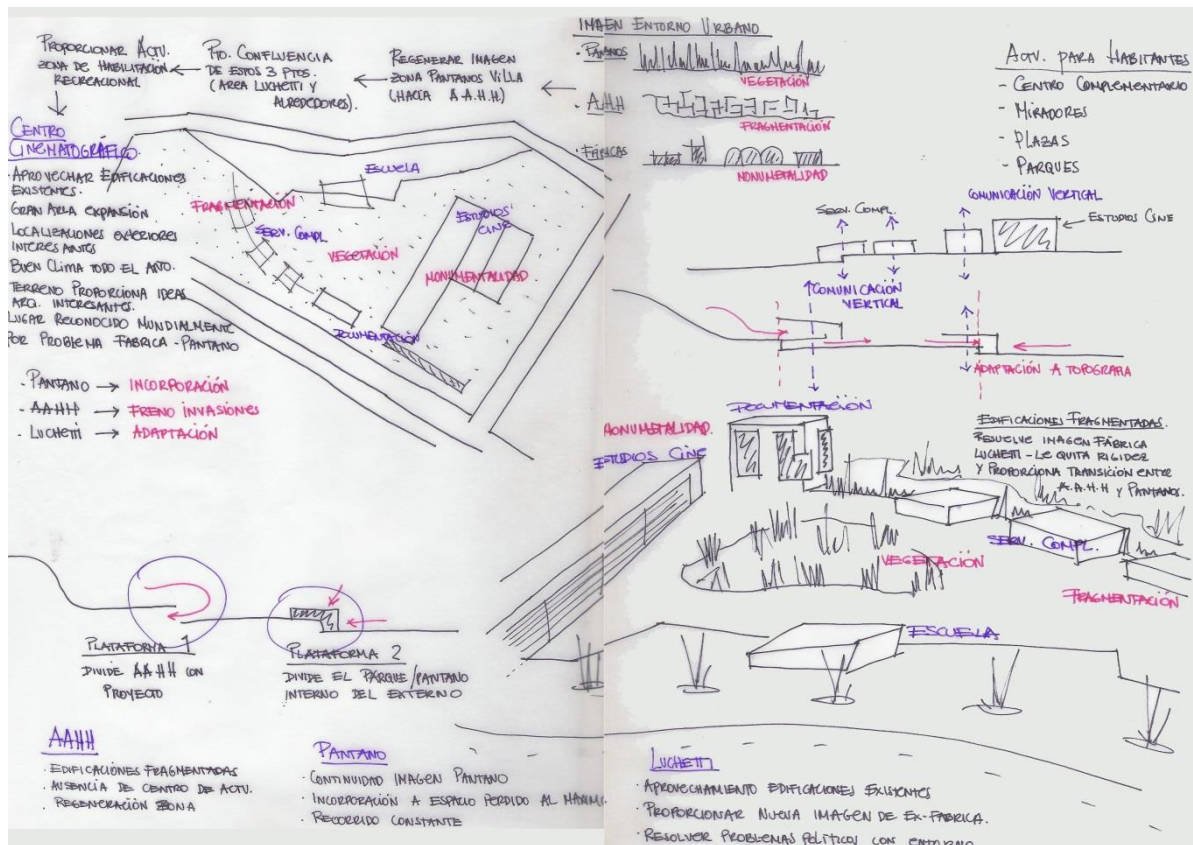 PROPORCIONAR ACTV.
ZONA DE HABILITACIÓN
RECREACIONAL
PTO. CONFLUENCIA
DE ESTOS 3 PTOS.
(AREA LUCHETTI Y
ALREDEDORES).
REGENERAR IMAGEN
ZONA PANTANOS VILLA
(HACIA A.A.H.H.)
CENTRO
CINEMATOGRÁFICO.
- APROVECHAR EDIFICACIONES
EXISTENTES.
- GRAN AREA EXPANSIÓN
- LOCALIZACIONES EXTERIORES
INTERESANTES
- BUEN CLIMA TODO EL AÑO.
- TERRENO PROPORCIONA IDEAS
ARQ. INTERESANTES.
- LUGAR RECONOCIDO MUNDIALMENTE
POR PROBLEMA FABRICA - PANTANO
ESCUELA
FRAGMENTACIÓN
SERV. COMPL.
VEGETACIÓN
ESTUDIOS
CINE
MONUMENTALIDAD
DOCUMENTACIÓN
- PANTANO → INCORPORACIÓN
- AAHH → FRENO INVASIONES
- LUCHETTI → ADAPTACIÓN
PLATAFORMA 1
DIVIDE AAHH CON
PROYECTO
PLATAFORMA 2
DIVIDE EL PARQUE/PANTANO
INTERNO DEL EXTERNO
AAHH
· EDIFICACIONES FRAGMENTADAS
· AUSENCIA DE CENTRO DE ACTV.
· REGENERACIÓN ZONA
PANTANO
· CONTINUIDAD IMAGEN PANTANO
· INCORPORACIÓN A ESPACIO PERDIDO AL MAXIMO
· RECORRIDO CONSTANTE
IMAEN ENTORNO URBANO
· PANTANOS
VEGETACIÓN
· AAHH
FRAGMENTACIÓN
· FÁBRICAS
MONUMETALIDAD
ACTV. PARA HABITANTES
- CENTRO COMPLEMENTARIO
- MIRADORES
- PLAZAS
- PARQUES
SERV. COMPL.
COMUNICACIÓN VERTICAL
ESTUDIOS CINE
COMUNICACIÓN
VERTICAL
ADAPTACIÓN A TOPOGRAFIA
DOCUMENTACIÓN
MONUMETALIDAD.
ESTUDIOS CINE
EDIFICACIONES FRAGMENTADAS.
RESUELVE IMAGEN FÁBRICA
LUCHETTI - LE QUITA RIGIDEZ
Y PROPORCIONA TRANSICIÓN ENTRE
A.A.H.H Y PANTANOS.
SERV. COMPL.
VEGETACIÓN
FRAGMENTACIÓN
ESCUELA
LUCHETTI
· APROVECHAMIENTO EDIFICACIONES EXISTENTES
· PROPORCIONAR NUEVA IMAGEN DE EX-FABRICA.
· RESOLVER PROBLEMAS POLÍTICOS CON ENTORNO